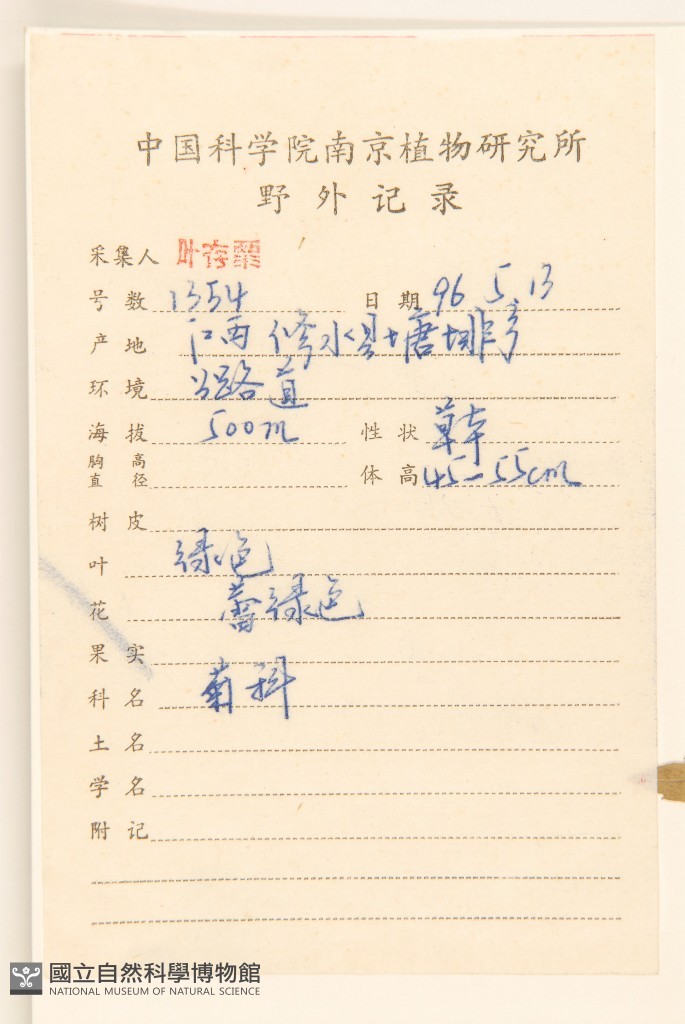 中国科学院南京植物研究所
野外记录
采集人 叶存粟
号数 1354 日期 96 5 13
产地 江西修水县塘排
环境 公路道
海拔 500m 性状 草本
胸高直径 体高 45-55cm
树皮
叶 绿色
花 蕾绿色
果实
科名 菊科
土名
学名
附记
國立自然科學博物館
NATIONAL MUSEUM OF NATURAL SCIENCE